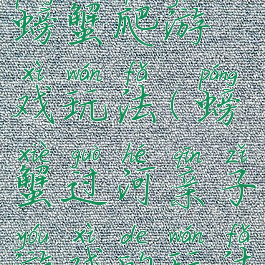 螃蟹爬游
xì wán fǎ páng
戏玩法(螃
xiè guò hé yīn zǐ
蟹过河蔂子
yóu xì de wán fǎ